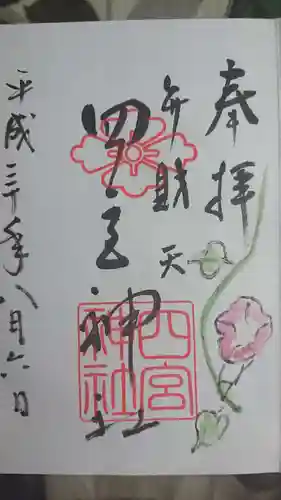 奉拝
弁財天
四宮神社
四宮
神社
平成三十年八月六日